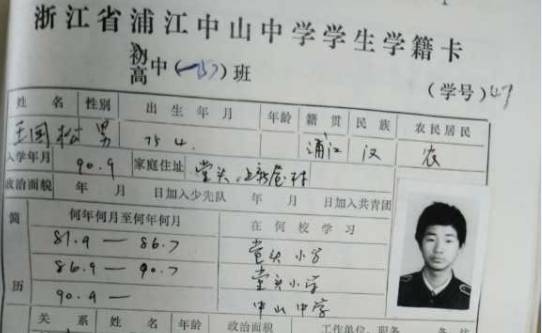 浙江省浦江中山中学学生学籍卡
初
高中( )班
(学号)47
姓 名 性别 出 生 年 月 年龄 籍 贯 民 族 农民居民
王国松 男 75 4. 浦江 汉 农
入学年月 90.9 家庭住址 堂头
政治面貌 年 月 日加入少先队 年 月 日加入共青团
简 何年何月至何年何月 在 何 校 学 习
81.9 — 86.7 堂头小学
86.9 — 90.7 堂头小学
历 90.9 — 中山中学
关 系 姓 名 年龄 政治面貌 工作单位、职务